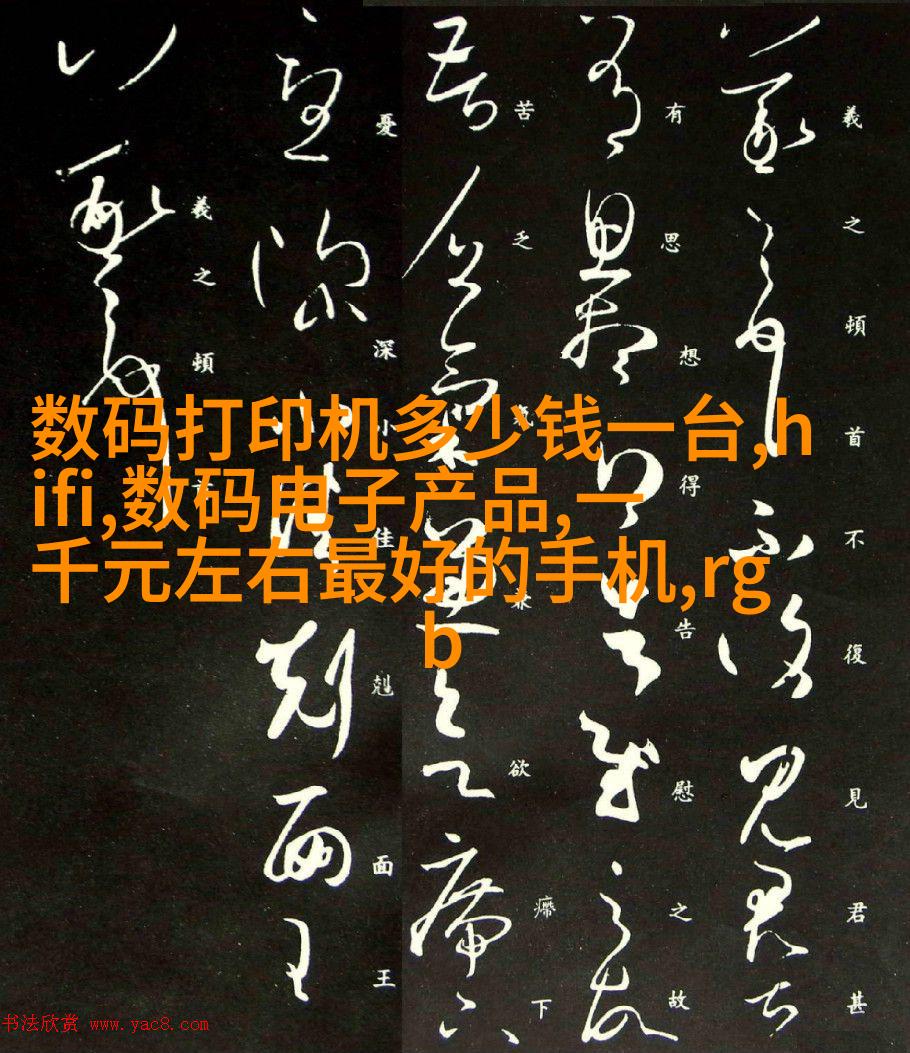 羲之頓首不復見君甚
有思想得告慰之故
苦乏氣兼欲㿃下
憂深小佳剋面王
羲之頓首
数码打印机多少钱一台,h
ifi,数码电子产品,一
千元左右最好的手机,rg
b
书法欣赏 www.yac8.com